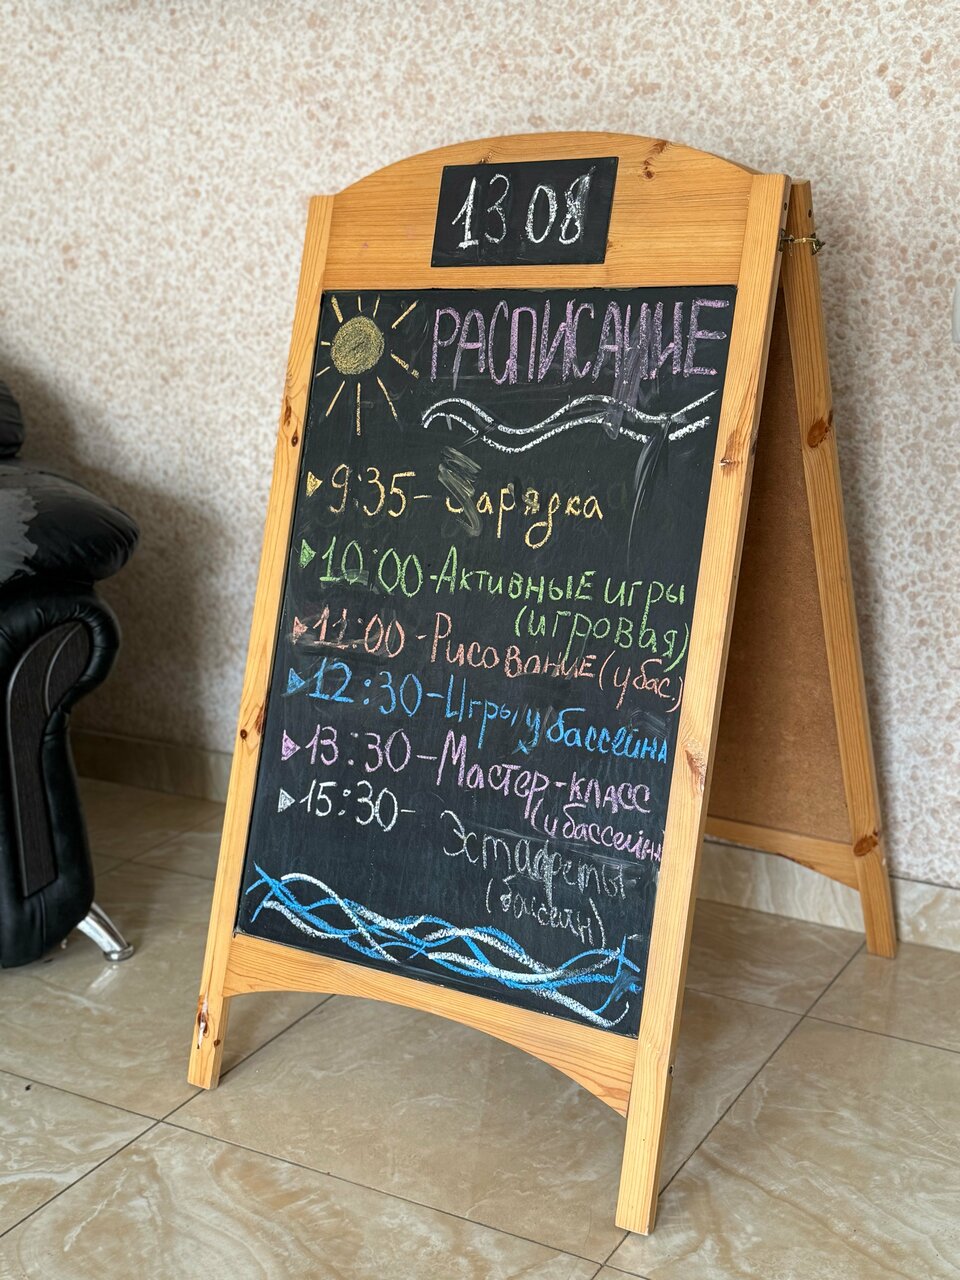 13 08
РАСПИСАНИЕ
9:35 - Зарядка
10:00 - Активные игры
(игровая)
11:00 - Рисование (у бас.)
12:30 - Игры у бассейна
13:30 - Мастер-класс
(у бассейна
15:30 -
Эстафеты
(бассейн)